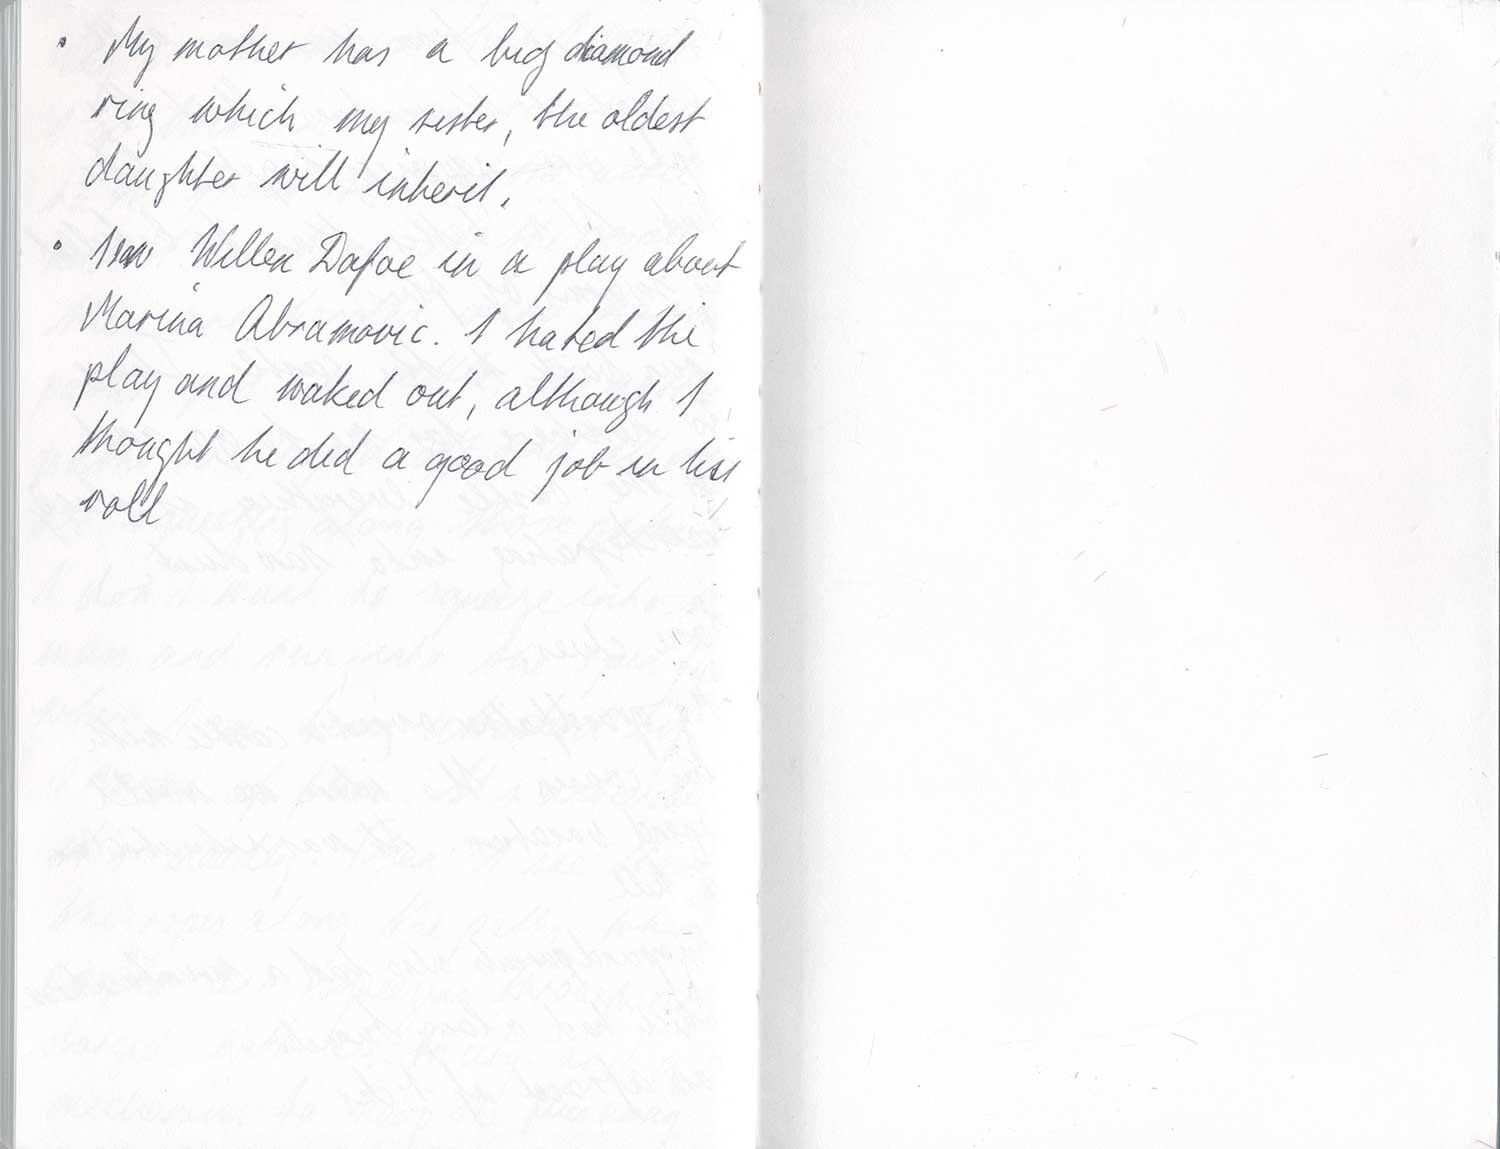 • My mother has a big diamond
ring which my sister, the oldest
daughter will inherit.
• I saw Willem Dafoe in a play about
Marina Abramovic. I hated the
play and waked out, although I
thought he did a good job in his
roll